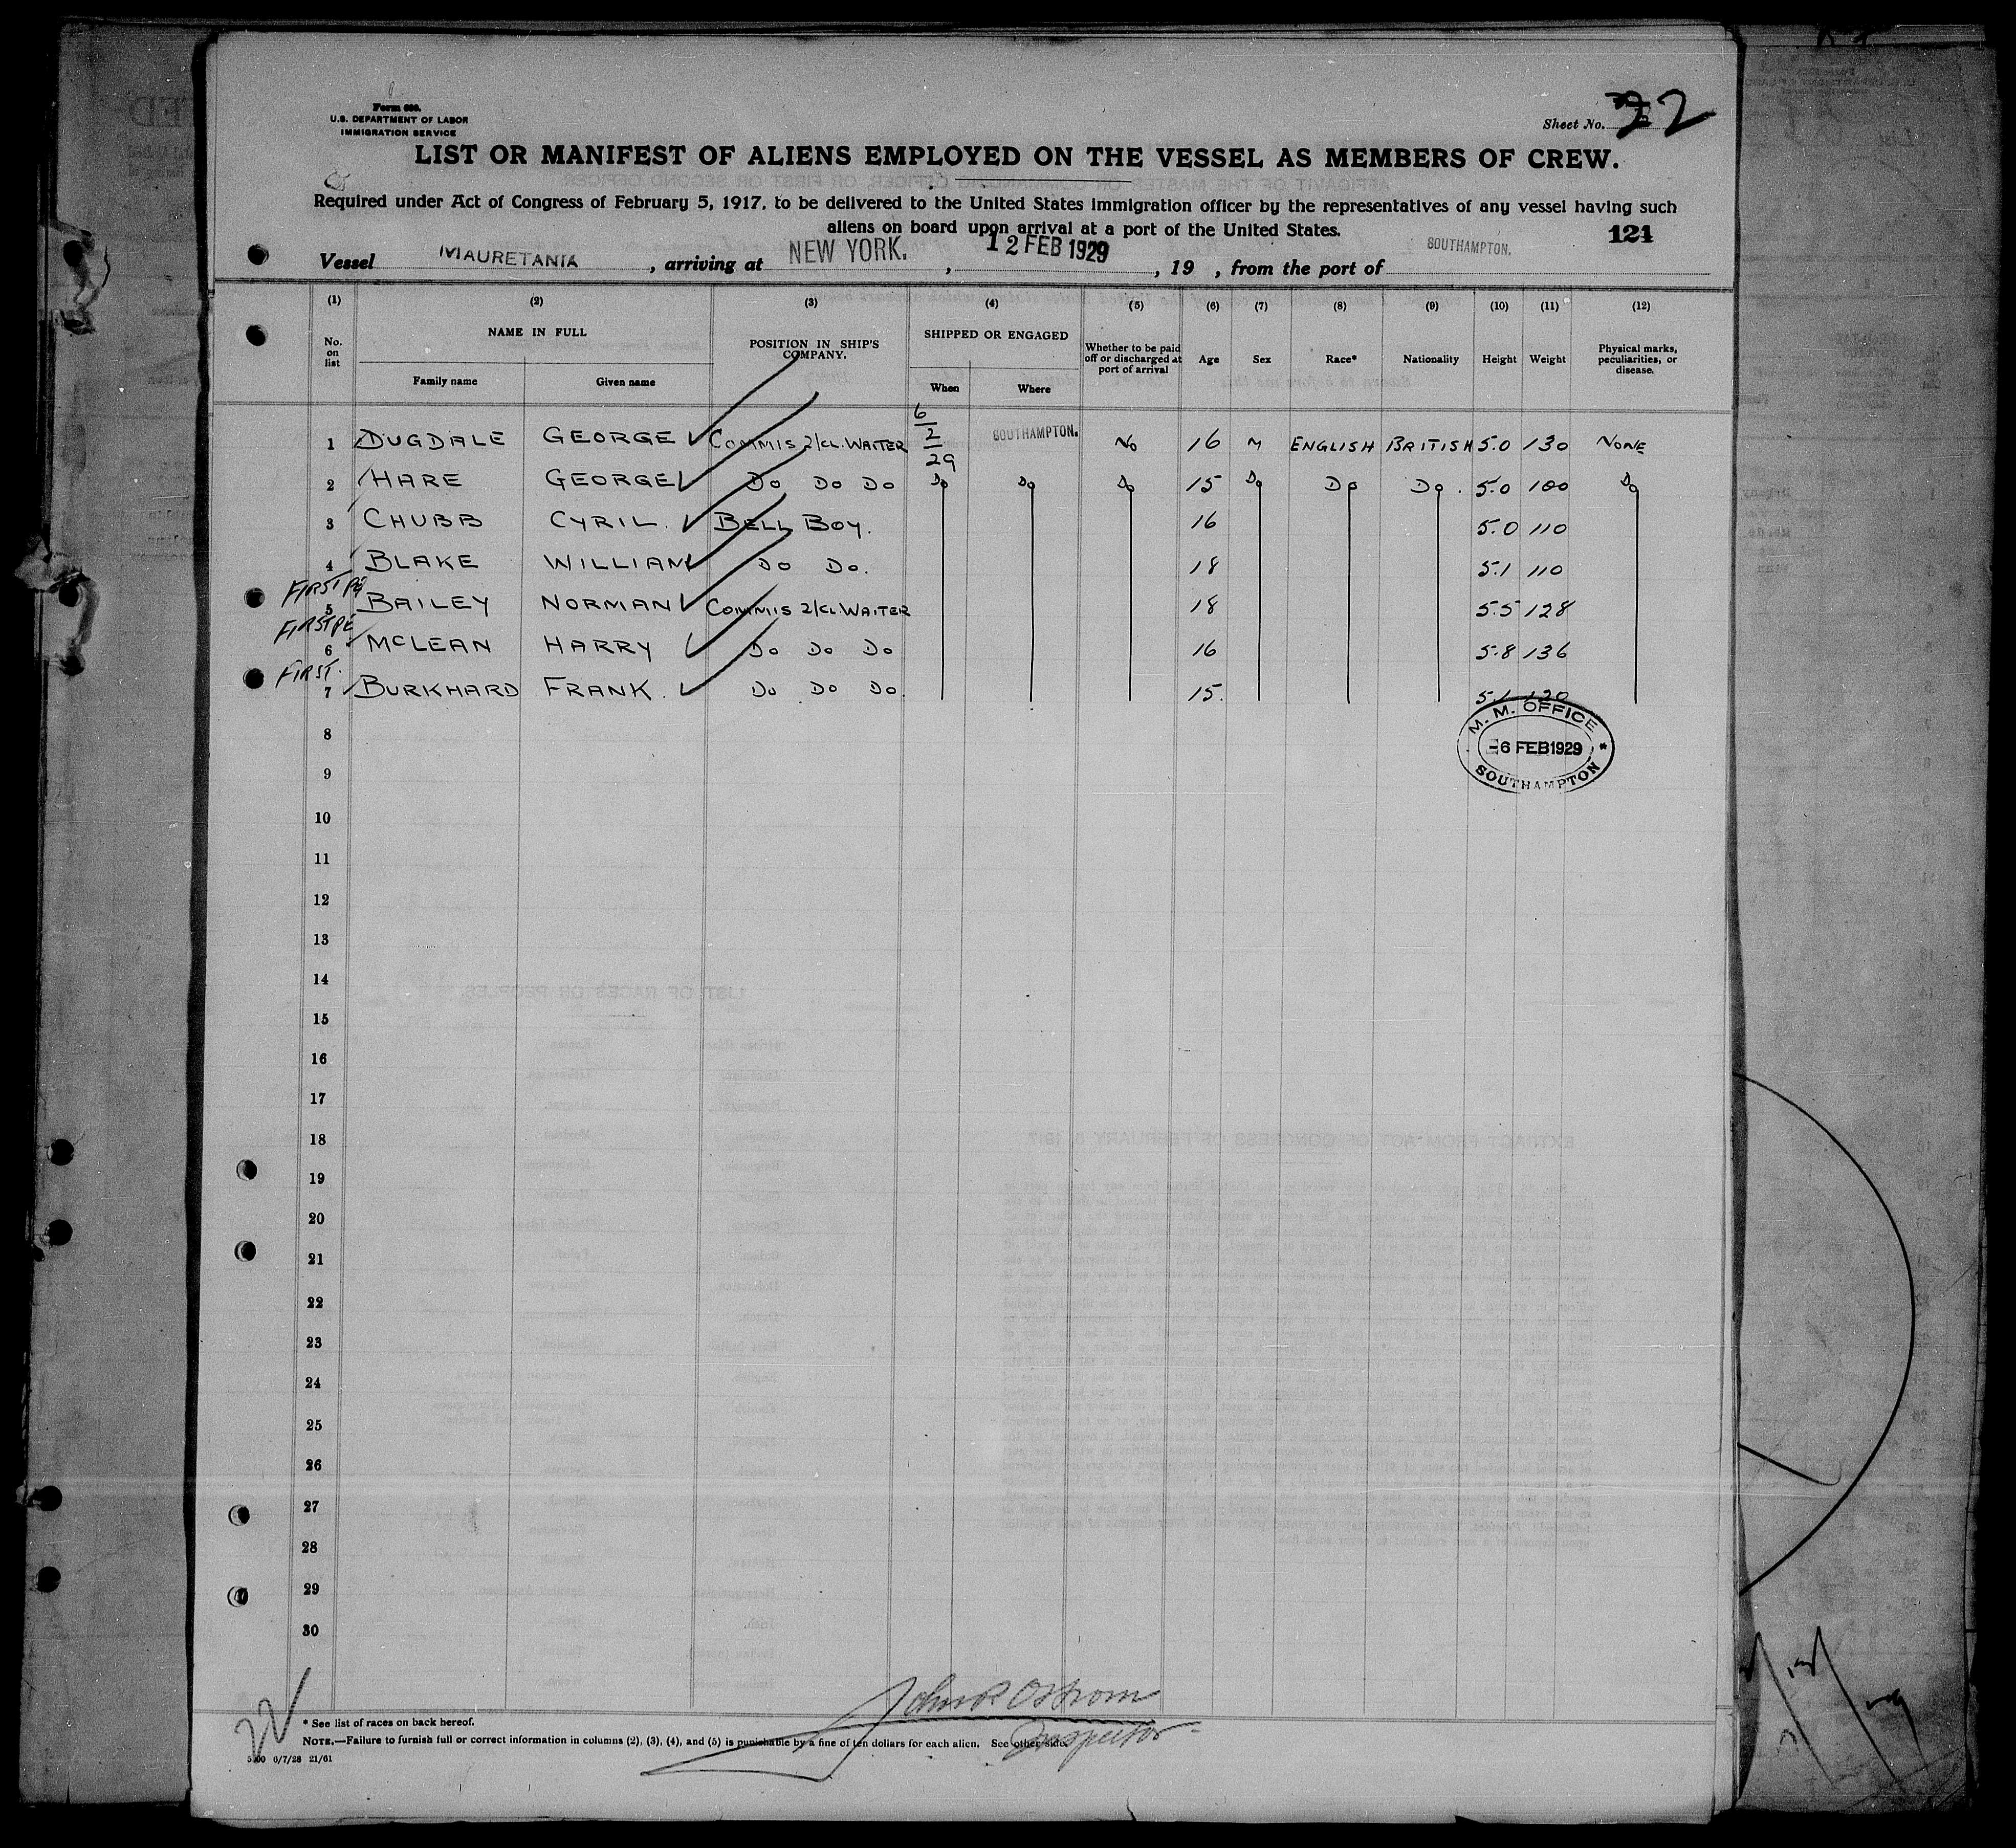 Form 680.
U.S. DEPARTMENT OF LABOR
IMMIGRATION SERVICE
Sheet No. 22
LIST OR MANIFEST OF ALIENS EMPLOYED ON THE VESSEL AS MEMBERS OF CREW.
Required under Act of Congress of February 5, 1917, to be delivered to the United States immigration officer by the representatives of any vessel having such
aliens on board upon arrival at a port of the United States.
121
Vessel MAURETANIA, arriving at NEW YORK., 12 FEB 1929, 19 , from the port of SOUTHAMPTON.
(1) (2) (3) (4) (5) (6) (7) (8) (9) (10) (11) (12)
No. on list
NAME IN FULL
Family name Given name
POSITION IN SHIP'S COMPANY.
SHIPPED OR ENGAGED
When Where
Whether to be paid off or discharged at port of arrival
Age Sex Race* Nationality Height Weight
Physical marks, peculiarities, or disease.
1 DUGDALE GEORGE COMMIS 2/CL. WAITER 6/2/29 SOUTHAMPTON. NO 16 M ENGLISH BRITISH 5.0 130 NONE
2 HARE GEORGE DO DO DO DO DO DO 15 DO DO DO. 5.0 100 DO
3 CHUBB CYRIL. BELL BOY. 16 5.0 110
4 BLAKE WILLIAM DO DO. 18 5.1 110
FIRST PE
5 BAILEY NORMAN COMMIS 2/CL. WAITER 18 5.5 128
FIRST PE
6 MCLEAN HARRY DO DO DO 16 5.8 136
FIRST.
7 BURKHARD FRANK. DO DO DO. 15. 5.1 120
M. M. OFFICE
-6 FEB 1929
SOUTHAMPTON
8
9
10
11
12
13
14
15
16
17
18
19
20
21
22
23
24
25
26
27
28
29
30
John R Ostrom
Inspector
* See list of races on back hereof.
NOTE.—Failure to furnish full or correct information in columns (2), (3), (4), and (5) is punishable by a fine of ten dollars for each alien. See other side.
6/7/28 21/61